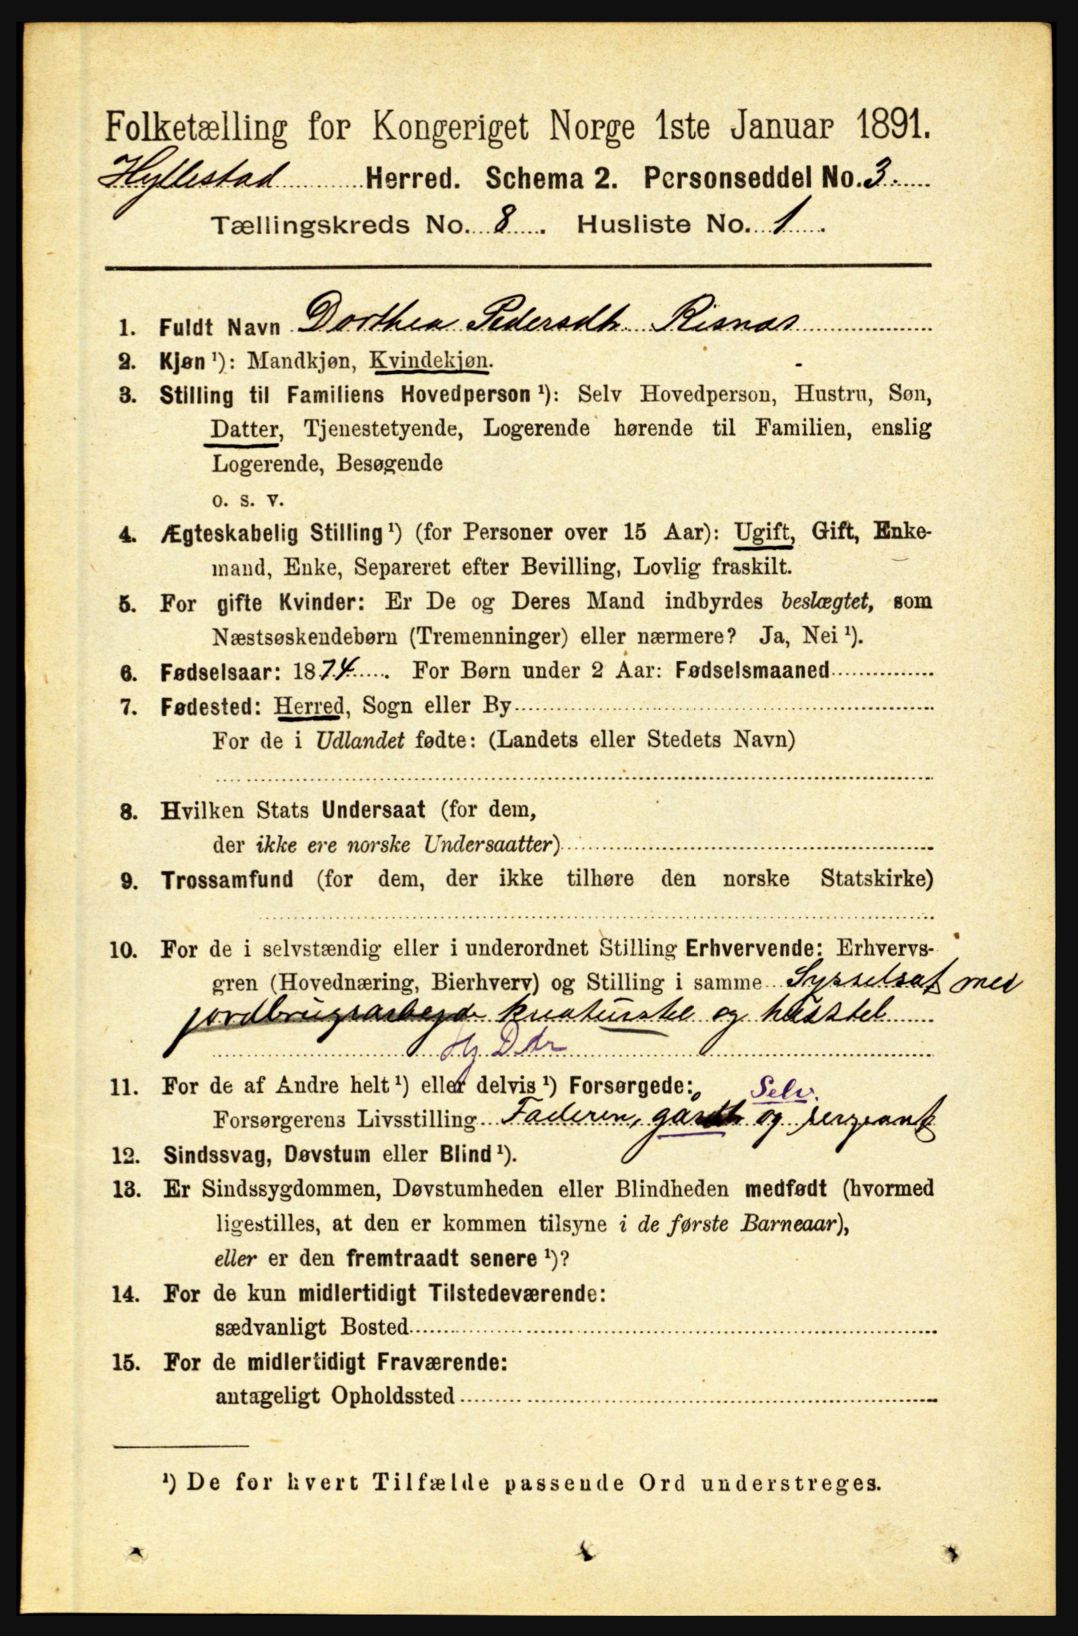 Folketælling for Kongeriget Norge 1ste Januar 1891.
Hyllestad Herred. Schema 2. Personseddel No. 3.
Tællingskreds No. 8. Husliste No. 1.
1. Fuldt Navn Dorthea Pedersdtr. Risnæs
2. Kjøn ¹): Mandkjøn, Kvindekjøn.
3. Stilling til Familiens Hovedperson ¹): Selv Hovedperson, Hustru, Søn,
Datter, Tjenestetyende, Logerende hørende til Familien, enslig
Logerende, Besøgende
o. s. v.
4. Ægteskabelig Stilling ¹) (for Personer over 15 Aar): Ugift, Gift, Enke-
mand, Enke, Separeret efter Bevilling, Lovlig fraskilt.
5. For gifte Kvinder: Er De og Deres Mand indbyrdes beslægtet, som
Næstsøskendebørn (Tremenninger) eller nærmere? Ja, Nei ¹).
6. Fødselsaar: 1874. For Børn under 2 Aar: Fødselsmaaned
7. Fødested: Herred, Sogn eller By
For de i Udlandet fødte: (Landets eller Stedets Navn)
8. Hvilken Stats Undersaat (for dem,
der ikke ere norske Undersaatter)
9. Trossamfund (for dem, der ikke tilhøre den norske Statskirke)
10. For de i selvstændig eller i underordnet Stilling Erhvervende: Erhvervs-
gren (Hovednæring, Bierhverv) og Stilling i samme Sysselsat med
jordbrugsarbejde kreaturstel og husstel
Hj Dtr
11. For de af Andre helt ¹) eller delvis ¹) Forsørgede: Selv.
Forsørgerens Livsstilling Faderen, gardb og sergeant
12. Sindssvag, Døvstum eller Blind ¹).
13. Er Sindssygdommen, Døvstumheden eller Blindheden medfødt (hvormed
ligestilles, at den er kommen tilsyne i de første Barneaar),
eller er den fremtraadt senere ¹)?
14. For de kun midlertidigt Tilstedeværende:
sædvanligt Bosted
15. For de midlertidigt Fraværende:
antageligt Opholdssted
¹) De for hvert Tilfælde passende Ord understreges.